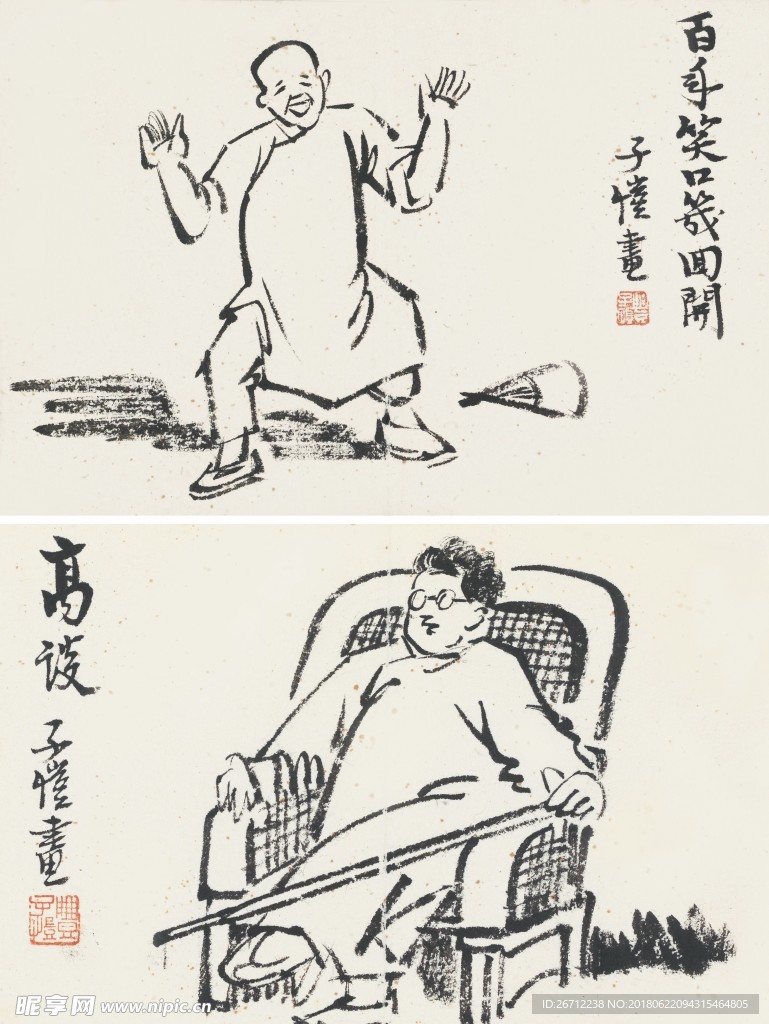 百年笑口几回開
子愷畫
豐子愷
高談
子愷畫
豐子愷
昵享网 www.nipic.cn
ID:26712238 NO:20180622094315464805